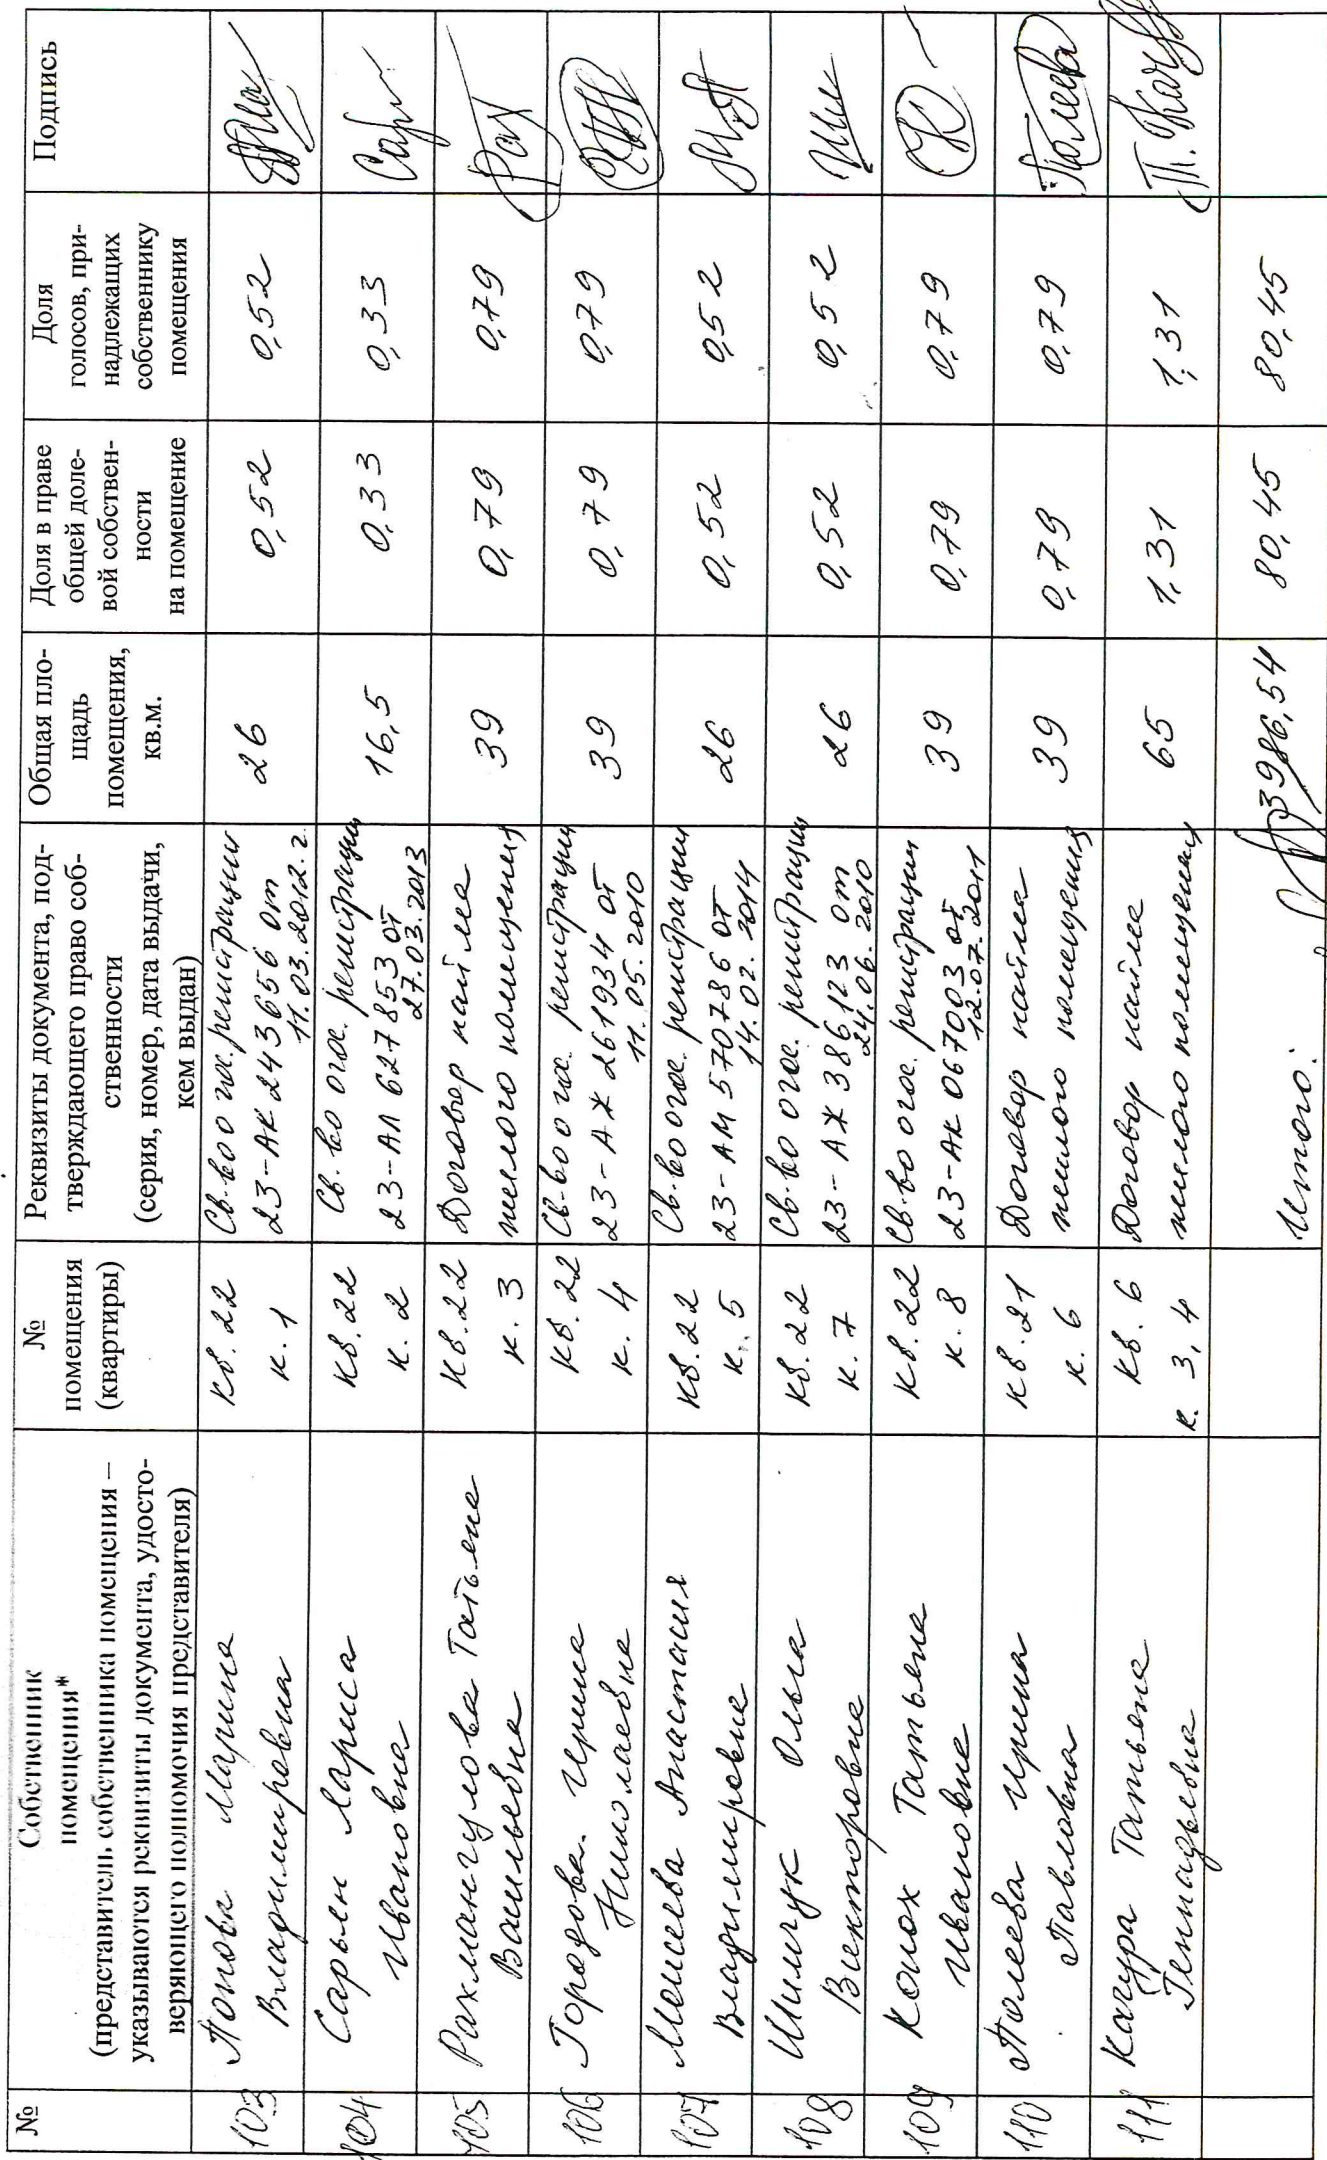 №
Собственник
помещения*
(представитель собственника помещения –
указываются реквизиты документа, удосто-
веряющего полномочия представителя)
№
помещения
(квартиры)
Реквизиты документа, под-
тверждающего право соб-
ственности
(серия, номер, дата выдачи,
кем выдан)
Общая пло-
щадь
помещения,
кв.м.
Доля в праве
общей доле-
вой собствен-
ности
на помещение
Доля
голосов, при-
надлежащих
собственнику
помещения
Подпись
103
Попова Марина
Владимировна
кв. 22
к. 1
Св-во о гос. регистрации
23-АК 243656 от
11.03.2012 г.
26
0,52
0,52
104
Сарьян Лариса
Ивановна
кв. 22
к. 2
Св-во о гос. регистрации
23-АЛ 627853 от
27.03.2013
16,5
0,33
0,33
Сарь
105
Рахмангулова Татьяна
Васильевна
кв. 22
к. 3
Договор найма
жилого помещения
39
0,79
0,79
Рах
106
Городова Ирина
Николаевна
кв. 22
к. 4
Св-во о гос. регистрации
23-АЖ 261934 от
11.05.2010
39
0,79
0,79
107
Моисеева Анастасия
Владимировна
кв. 22
к. 5
Св-во о гос. регистрации
23-АМ 570786 от
14.02.2014
26
0,52
0,52
108
Шимчук Ольга
Викторовна
кв. 22
к. 7
Св-во о гос. регистрации
23-АЖ 386123 от
24.06.2010
26
0,52
0,52
109
Колох Татьяна
Ивановна
кв. 22
к. 8
Св-во о гос. регистрации
23-АК 067003 от
12.07.2011
39
0,79
0,79
110
Полеева Ирина
Павловна
кв. 21
к. 6
Договор найма
жилого помещения
39
0,79
0,79
Полеева
111
Качура Татьяна
Геннадьевна
кв. 6
к. 3, 4
Договор найма
жилого помещения
65
1,31
1,31
Т. Кач
Итого:
3986,54
80,45
80,45